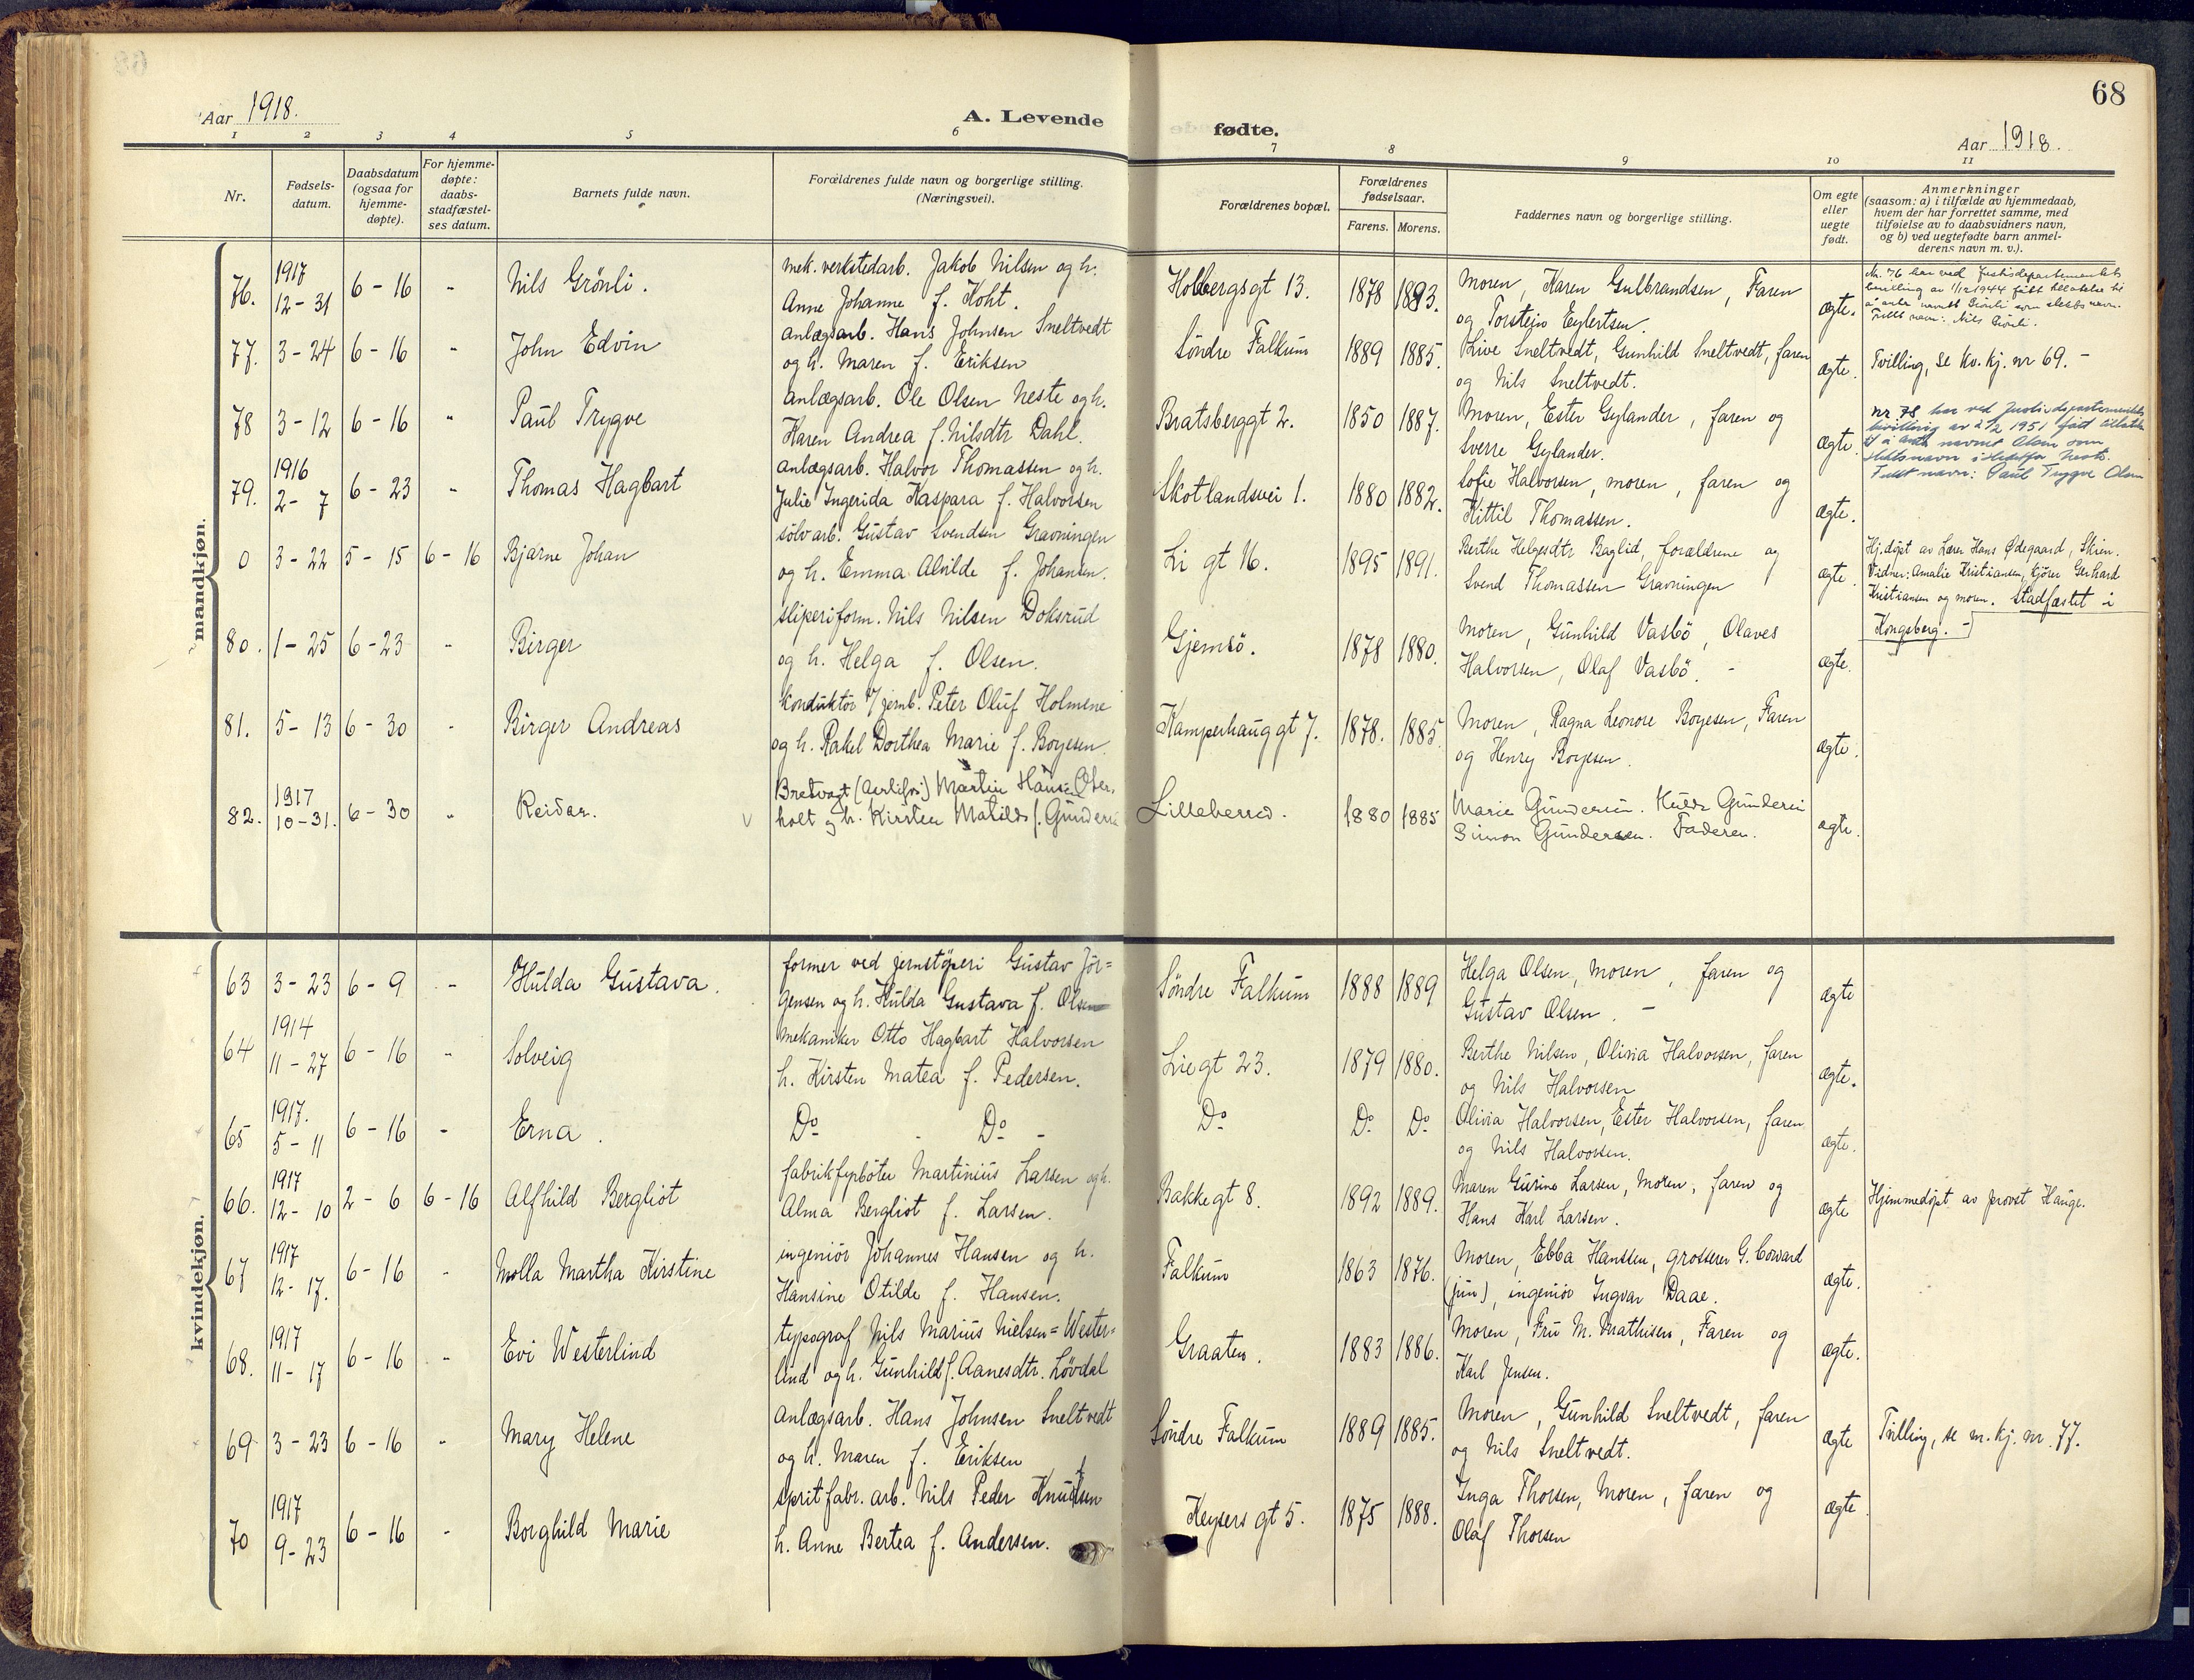 68
Aar 1918.
A. Levende fødte.
Aar 1918.
1 2 3 4 5 6 7 8 9 10 11
Nr.
Fødsels-
datum.
Daabsdatum
(ogsaa for
hjemme-
døpte).
For hjemme-
døpte:
daabs-
stadfæstel-
ses datum.
Barnets fulde navn.
Forældrenes fulde navn og borgerlige stilling.
(Næringsvei).
Forældrenes bopæl.
Forældrenes
fødselsaar.
Farens. Morens.
Faddernes navn og borgerlige stilling.
Om egte
eller
uegte
født.
Anmerkninger
(saasom: a) i tilfælde av hjemmedaab,
hvem der har forrettet samme, med
tilføielse av to daabsvidners navn,
og b) ved uegtefødte barn anmel-
derens navn m. v.).
mandkjøn.
76. 1917 12-31 6-16 - Nils Grönli.
mek. verkstedarb. Jakob Nilsen og h.
Anne Johanne f. Koht.
Holbergsgt 13. 1878 1893.
Moren, Karen Gulbrandsen, Faren
og Torstein Eylertsen.
ægte.
Nr. 76 har ved Justisdepartementets
bevilling av 1/12 1944 fått tillatelse til
å anta navnet Grönli som slektsnavn.
Fullt navn: Nils Grönli.
77. 3-24 6-16 - John Edvin
anlægsarb. Hans Johnsen Sneltvedt
og h. Maren f. Eriksen
Söndre Falkum 1889 1885.
Live Sneltvedt, Gunhild Sneltvedt, faren
og Nils Sneltvedt.
ægte.
Tvilling, se kv. kj. nr 69. -
78 3-12 6-16 - Paul Trygve
anlægsarb. Ole Olsen Neste og h.
Karen Andrea f. Nilsdtr Dahl.
Bratsberggt 2. 1850 1887.
Moren, Ester Gylander, faren og
Sverre Gylander.
ægte.
Nr 78 har ved Justisdepartementets
bevilling av 2/2 1951 fått tillatelse
til å anta navnet Olsen som
slektsnavn istedetfor Neste.
Fullt navn: Paul Trygve Olsen
79. 1916 2-7 6-23 - Thomas Hagbart
anlægsarb. Halvor Thomassen og h.
Julie Ingerida Kaspara f. Halvorsen
Skotlandsvei 1. 1880 1882.
Sofie Halvorsen, moren, faren og
Kittil Thomassen.
ægte.
0 3-22 5-15 6-16 Bjarne Johan
sölvarb. Gustav Svendsen Gravningen
og h. Emma Alvilde f. Johansen.
Li gt 16. 1895 1891.
Berthe Helgesdtr Baglid, forældrene og
Svend Thomassen Gravningen
ægte.
Hj. döpt av Lærer Hans Ødegaard, Skien.
Vidner: Amalie Kristiansen, kjörer Gerhard
Kristiansen og moren. Stadfæstet i
Kongsberg. -
80. 1-25 6-23 - Birger
sliperiform. Nils Nilsen Doksrud
og h. Helga f. Olsen.
Gjemsö. 1878 1880.
Moren, Gunhild Vasbö, Olaves
Halvorsen, Olaf Vasbö. -
ægte.
81. 5-13 6-30 - Birger Andreas
konduktör v/ jernb. Peter Oluf Holmene
og h. Rakel Dorthea Marie f. Boyesen.
Kamperhauggt 7. 1878. 1885
Moren, Ragna Leonore Boyesen, Faren
og Henry Boyesen.
ægte.
82. 1917 10-31. 6-30 - Reidar.
Martin Hansen Ober-
holt og h. Kirsten Matilde f. Gundersen
Lilleberrd. 1880 1885
Marie Gundersen. Hulda Gundersen
Simon Gundersen. Faderen.
ægte.
kvindekjøn.
63 3-23 6-9 - Hulda Gustava.
former ved jernstöperi Gustav Jör=
gensen og h. Hulda Gustava f. Olsen
Söndre Falkum 1888 1889
Helga Olsen, moren, faren og
Gustav Olsen. -
ægte
64 1914 11-27 6-16 - Solveig
mekaniker Otto Hagbart Halvorsen
h. Kirsten Matea f. Pedersen.
Liegt 23. 1879 1880.
Berthe Nilsen, Olivia Halvorsen, faren
og Nils Halvorsen
ægte.
65 1917. 5-11 6-16 - Erna.
Do - Do -
Do Do Do
Olivia Halvorsen, Ester Halvorsen, faren
og Nils Halvorsen.
ægte.
66. 1917 12-10 2-6 6-16 Alfhild Bergliot
fabrikfyrböter Martinius Larsen og h.
Alma Bergliot f. Larsen.
Bakkegt 8. 1892 1889.
Maren Gurine Larsen, Moren, faren og
Hans Karl Larsen.
ægte
Hjemmedöpt av provst Hauge.
67 1917 12-17. 6-16 - Molla Martha Kirstine
ingeniör Johannes Hansen og h.
Hansine Otilde f. Hansen.
Falkum 1863 1876.
Moren, Ebba Hanssen, grosserer G. Coward
(jun), ingeniör Ingvar Daae.
ægte.
68. 1917 11-17 6-16 - Evi Westerlind
typograf Nils Marius Nielsen=Wester=
lind og h. Gunhild f. Aanesdtr. Lövdal
Graaten. 1883 1886.
Moren, Fru M. Mathisen, Faren og
Karl Jensen.
ægte.
69 3-23 6-16 - Mary Helene
anlægsarb. Hans Johnsen Sneltvedt
og h. Maren f. Eriksen
Söndre Falkum 1889 1885.
Moren, Gunhild Sneltvedt, faren
og Nils Sneltvedt.
ægte
Tvilling, se m. kj. nr. 77.
70 1917 9-23 6-16 - Borghild Marie
spritfabr. arb. Nils Peder Knudsen
h. Anne Bertea f. Andersen.
Keysers gt 5. 1875 1888.
Inga Thorsen, Moren, faren og
Olaf Thorsen
ægte.